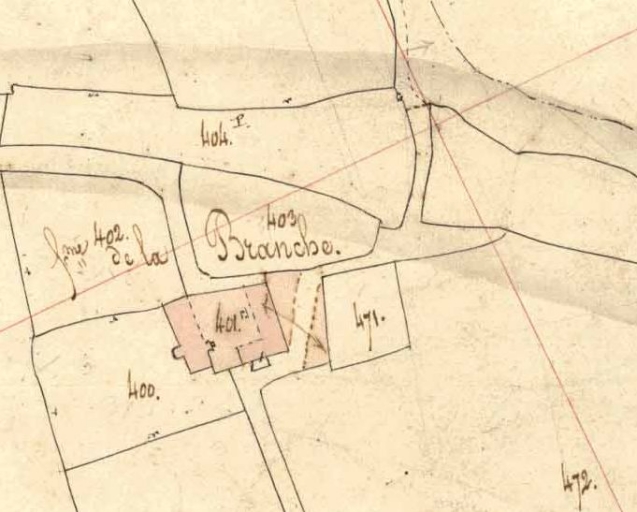 404.P.
403
fme 402. de la Branche.
401.
471.
400.
472.